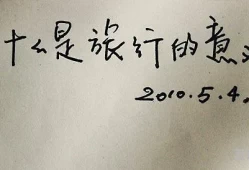 什么是旅行的意
2010.5.4.